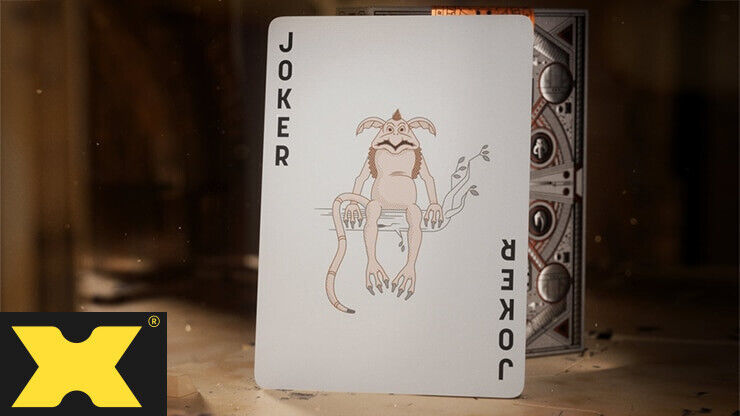 JOKER
JOKER
X®